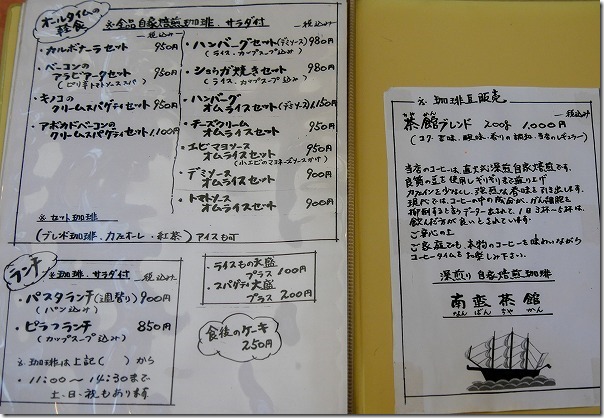 オールタイムの
軽食
※全品自家焙煎珈琲、サラダ付
税込み
・カルボナーラセット 950円
・ベーコンの
アラビアータセット 950円
(ピリ辛トマトソーススパ)
・キノコの
クリームスパゲティセット 950円
・アボカドベーコンの
クリームスパゲティセット 1,100円
※セット珈琲
(ブレンド珈琲、カフェオーレ・紅茶)アイスも可
税込み
・ハンバーグセット(デミソース) 980円
(ライス、カップスープ込み)
・ショウガ焼きセット 980円
(ライス、カップスープ込み)
・ハンバーグ
オムライスセット(デミソース) 1,150円
・チーズクリーム
オムライスセット 950円
・エビマヨソース
オムライスセット 950円
(小エビのマヨネーズソースかけ)
・デミソース
オムライスセット 900円
・トマトソース
オムライスセット 900円
ランチ
※珈琲、サラダ付 税込み
・パスタランチ(週替り) 900円
(パン込み)
・ピラフランチ 850円
(カップスープ込み)
※珈琲は上記( )から
・11:00〜14:30まで
土、日、祝もあります
・ライスもの大盛
プラス 100円
・スパゲティ大盛
プラス 200円
食後のケーキ
250円
※珈琲豆販売
税込み
茶館ブレンド 200g 1,000円
(コク・苦味、酸味、香りの調和、当店のレギュラー)
当店のコーヒーは直火式深煎自家焙煎です。
良質の豆を使用しぎりぎりまで煎り上げ
カフェインを少なくし、強烈な香味を引き出します。
現代では、コーヒーの中の成分が、がん細胞を
抑制すると言うデーターもまれて、1日3杯〜5杯は
飲んだ方が良いとされています
ご安心の上
ご家庭でも、本物のコーヒーを味わいながら
コーヒータイムをお楽しみ下さい。
深煎り 自家焙煎珈琲
南蛮茶館
なんばんちゃかん